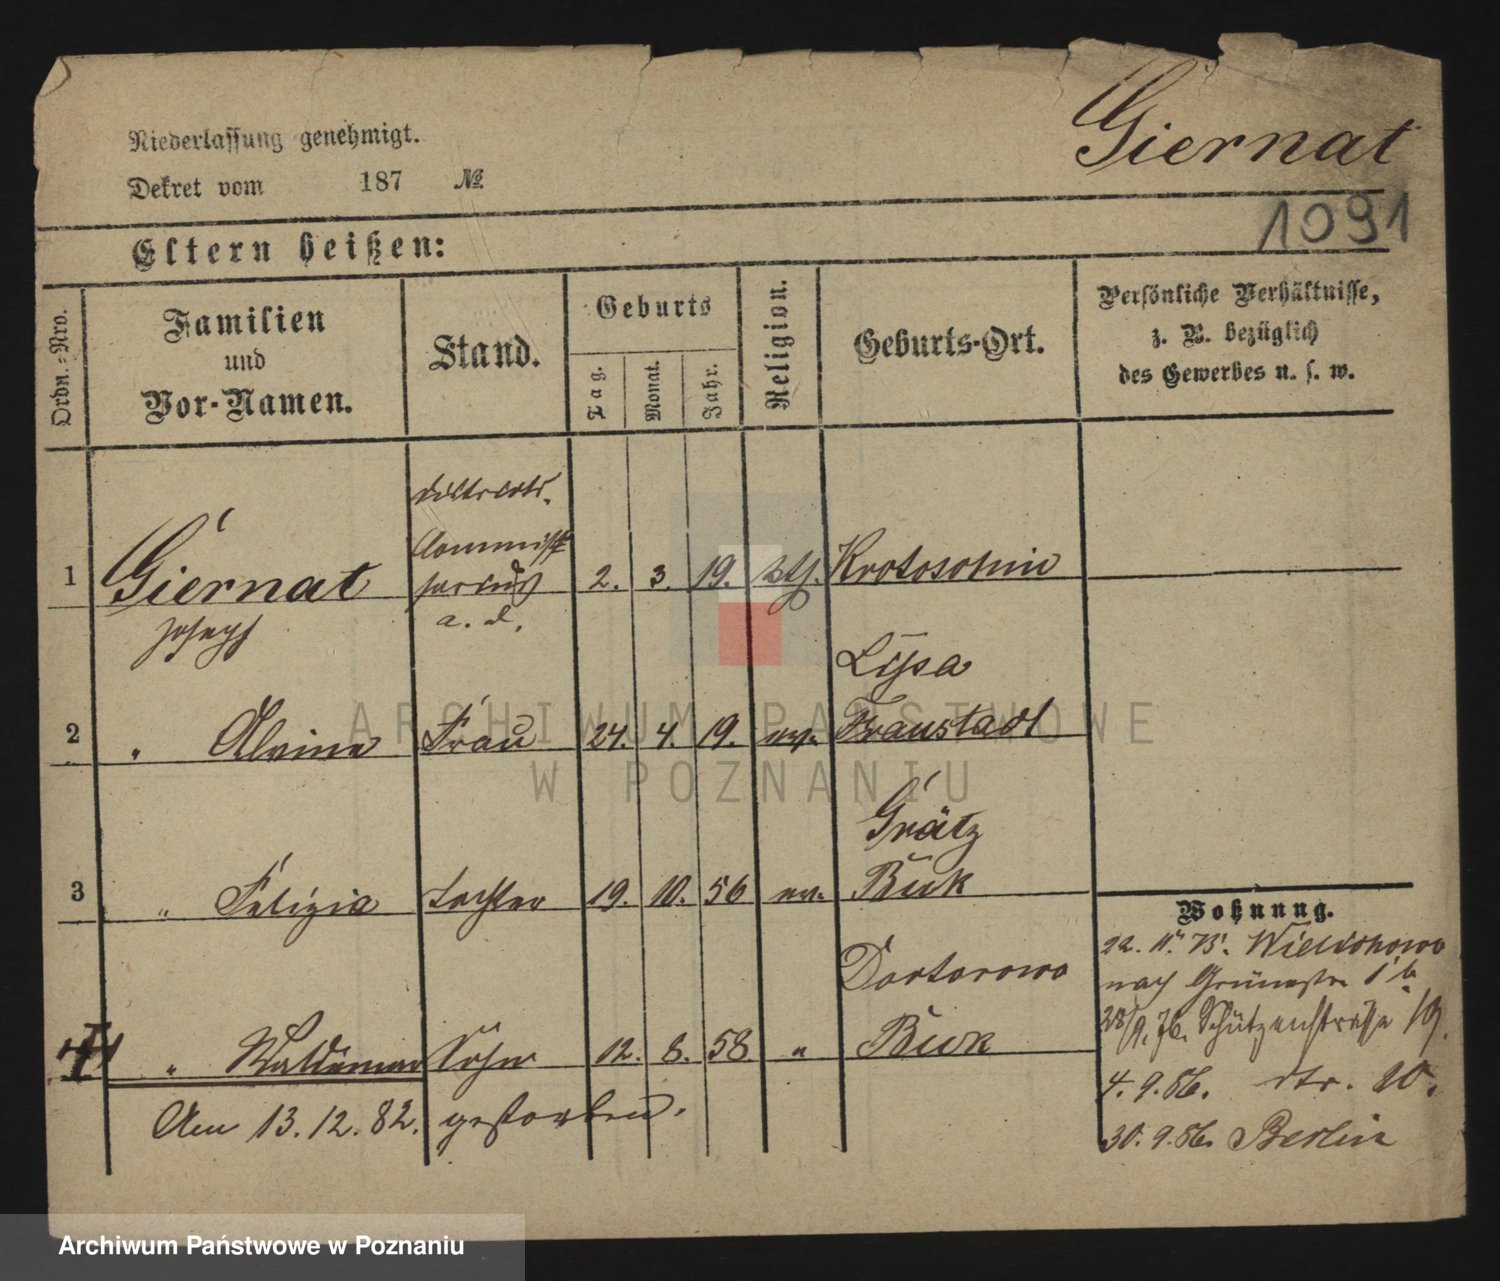 Giernat
Niederlassung genehmigt.
Dekret vom 187 №
1091
Eltern heißen:
Ordn.-Nro.
Familien
und
Vor-Namen.
Stand.
Geburts
Tag.
Monat.
Jahr.
Religion.
Geburts-Ort.
Persönliche Verhältnisse,
z. B. bezüglich
des Gewerbes u. s. w.
Districts-
Commissarius
a. d.
1 Giernat 2. 3. 19. Krotoschin
Joseph
Lissa
2 " Alvine Frau 24. 4. 19. ev. Fraustadt
Grätz
3 " Felizia Tochter 19. 10. 56 ev. Buk
Wohnung.
22. 11. 75. Wielichowo
nach Grünestr 1b
28/9. 76. Schützenstraße 19.
4. 9. 86. str. 20.
30. 9. 86. Berlin
4 " Waldemar Sohn 12. 8. 58 " Buk
Am 13. 12. 82. gestorben.
ARCHIWUM PAŃSTWOWE
W POZNANIU
Archiwum Państwowe w Poznaniu